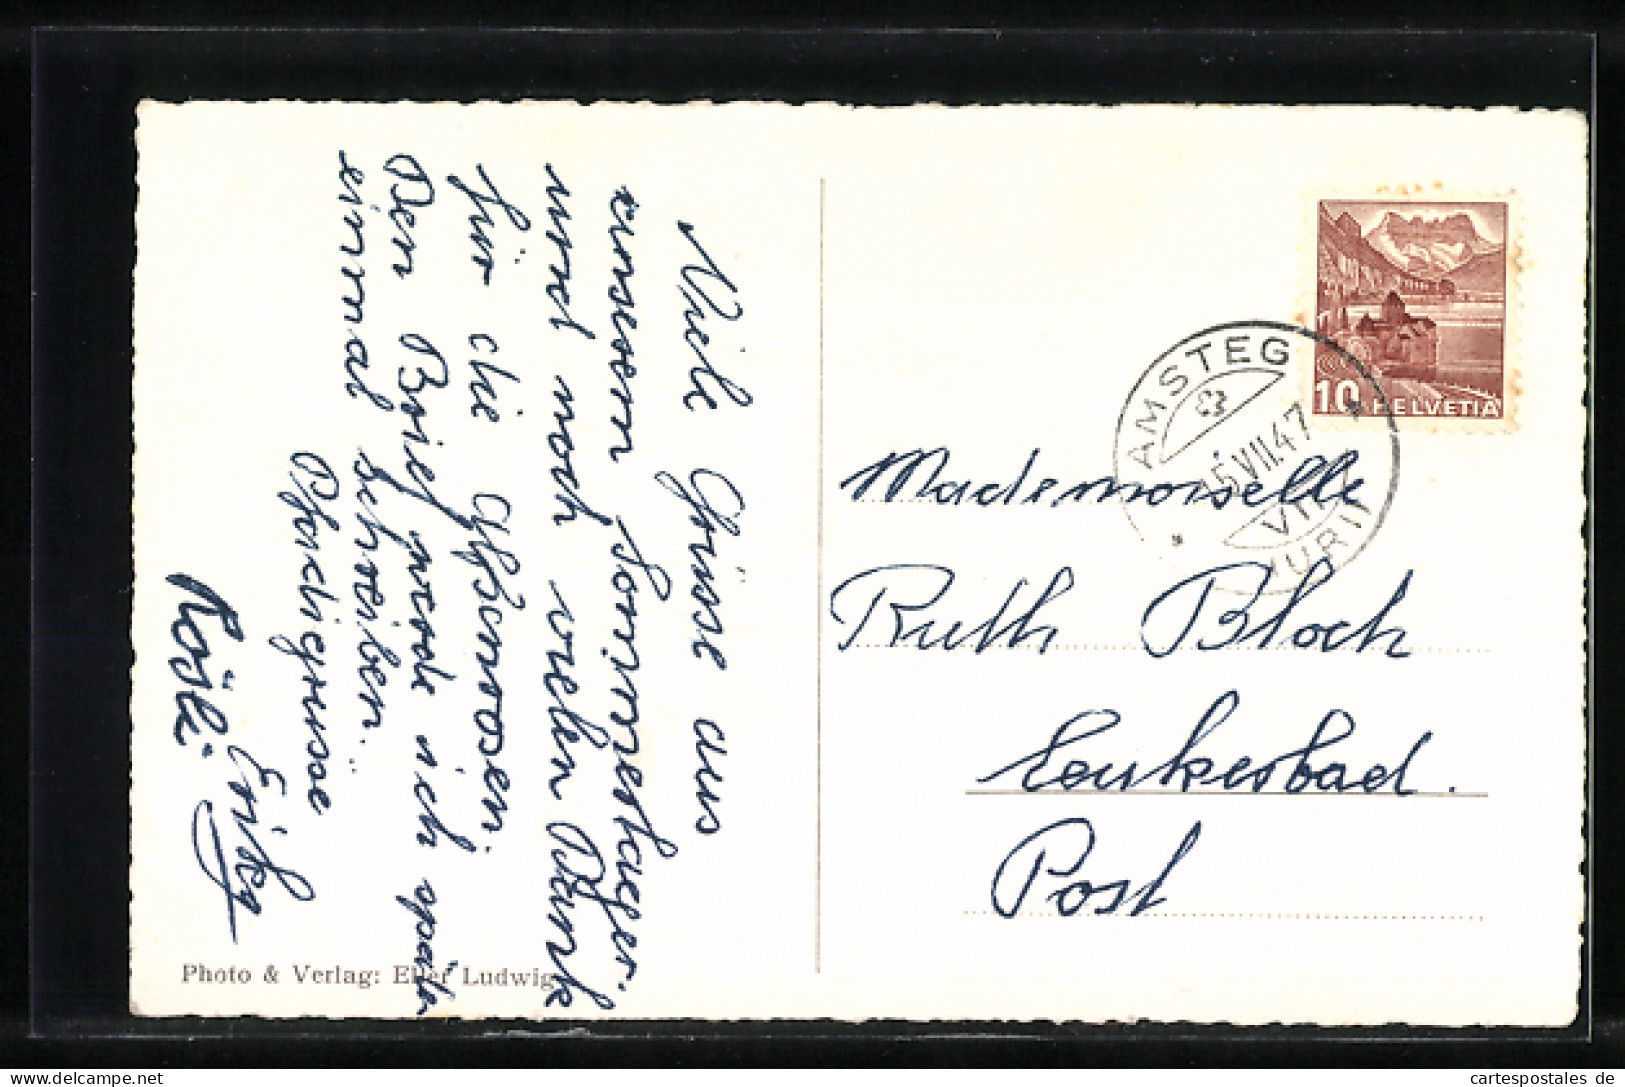 Viele Grüsse aus
unserem Sommerlager
und noch vielen Dank
für die
Den Brief werde ich später
einmal schreiben...
Pfadigrüsse
Rösli
Photo & Verlag: Eller Ludwig
AMSTEG
5.VII.47
VII
URI
10
HELVETIA
Mademoiselle
Ruth Bloch
Leukerbad.
Post
cartespostales.de